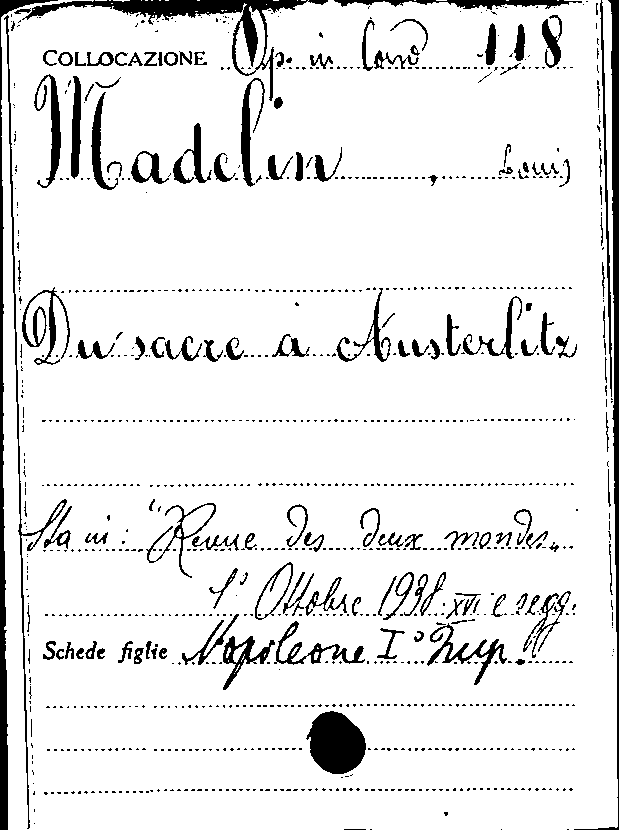 COLLOCAZIONE Op. in Cons 118
Madelin, Louis
Du sacre à Austerlitz
Sta in: "Revue des deux mondes„
1° Ottobre 1938. XVI e segg.
Schede figlie Napoleone I° Imp.